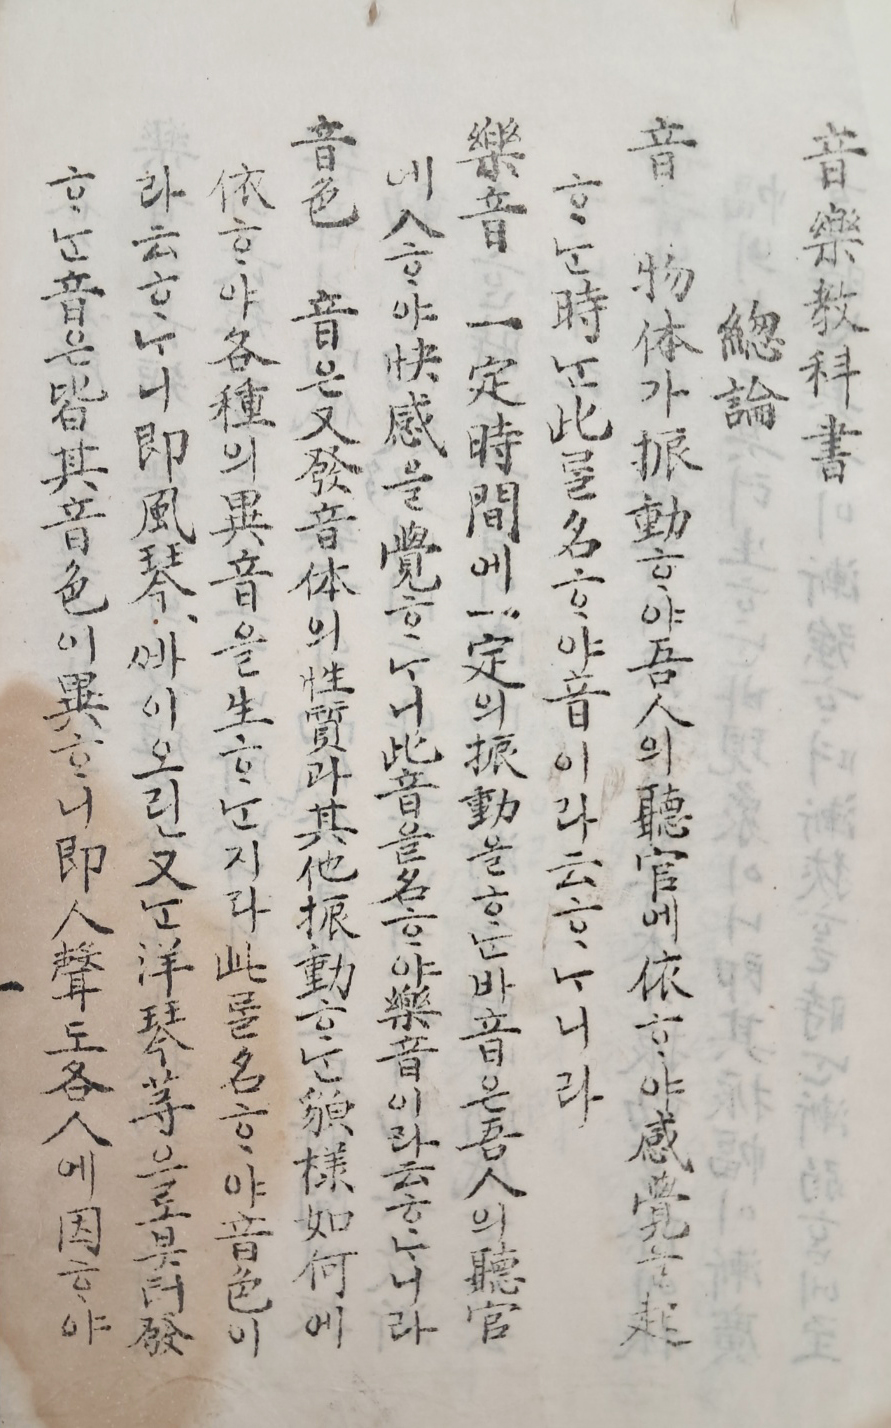 音樂教科書
總論
音 物体가振動ᄒᆞ야吾人의聽官에依ᄒᆞ야感覺을起
ᄒᆞᄂᆞᆫ時ᄂᆞᆫ此ᄅᆞᆯ名ᄒᆞ야音이라云ᄒᆞᄂᆞ니라
樂音 一定時間에一定의振動을ᄒᆞᄂᆞᆫ바音은吾人의聽官
에入ᄒᆞ야快感을覺ᄒᆞᄂᆞ니此音을名ᄒᆞ야樂音이라云ᄒᆞᄂᆞ니라
音色 音은又發音体의性質과其他振動ᄒᆞᄂᆞᆫ貌樣如何에
依ᄒᆞ야各種의異音을生ᄒᆞᄂᆞᆫ지라此ᄅᆞᆯ名ᄒᆞ야音色이
라云ᄒᆞᄂᆞ니即風琴、ᄲᅡ이오린又ᄂᆞᆫ洋琴等으로븟터發
ᄒᆞᄂᆞᆫ音은皆其音色이異ᄒᆞ니即人聲도各人에因ᄒᆞ야